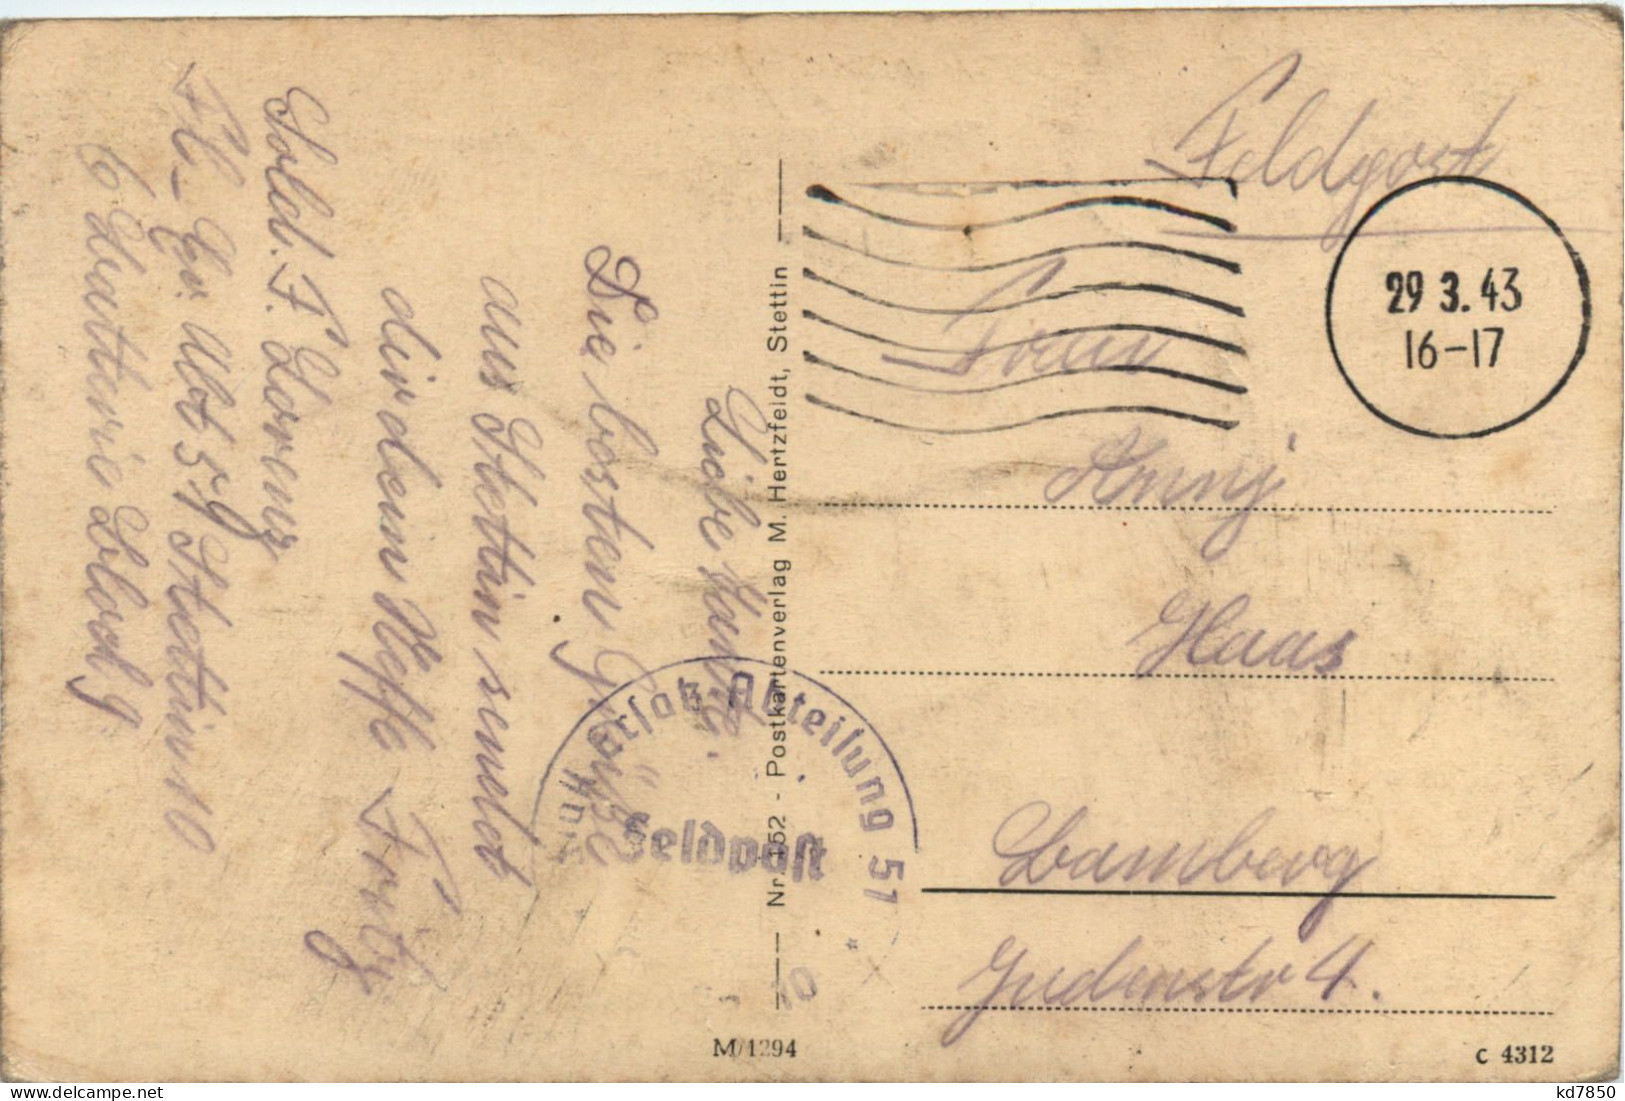 Sold. F. Lorenz
Fl.-Er. Abt 59 Stettin 10
6 Batterie Block 9
Liebe Tante.
Die besten Grüße
aus Stettin sendet
dir dein Neffe Fritz
Nr. 152 - Postkartenverlag M. Hertzfeldt, Stettin
Feldpost
29 3. 43
16-17
Frau
Anny
Haas
Bamberg
Judenstr 4.
ersatz-Abteilung 51
Feldpost
M/1294
C 4312
kd7850